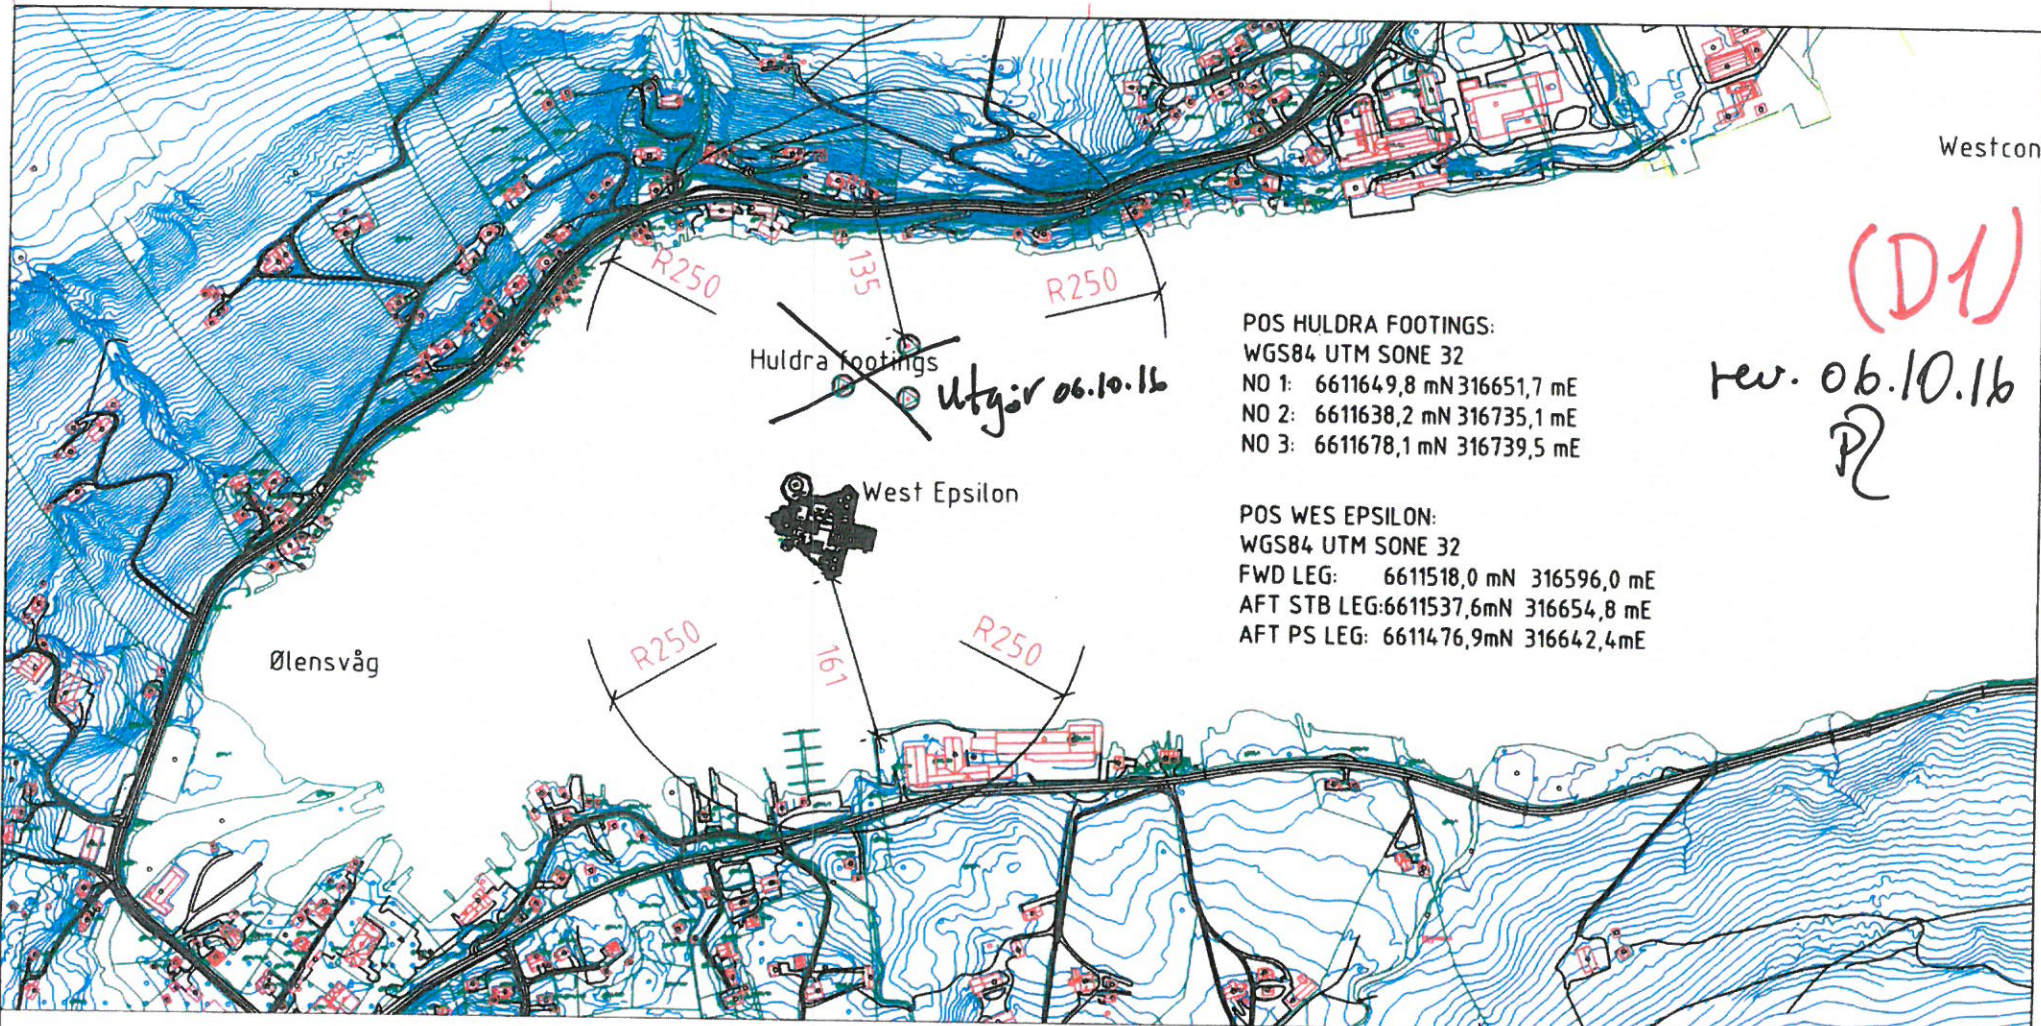 Westcon
(D1)
rev. 06.10.16
R250
135
R250
POS HULDRA FOOTINGS:
WGS84 UTM SONE 32
NO 1: 6611649,8 mN 316651,7 mE
NO 2: 6611638,2 mN 316735,1 mE
NO 3: 6611678,1 mN 316739,5 mE
Huldra footings
Utgår 06.10.16
West Epsilon
POS WES EPSILON:
WGS84 UTM SONE 32
FWD LEG: 6611518,0 mN 316596,0 mE
AFT STB LEG:6611537,6mN 316654,8 mE
AFT PS LEG: 6611476,9mN 316642,4mE
Ølensvåg
R250
161
R250